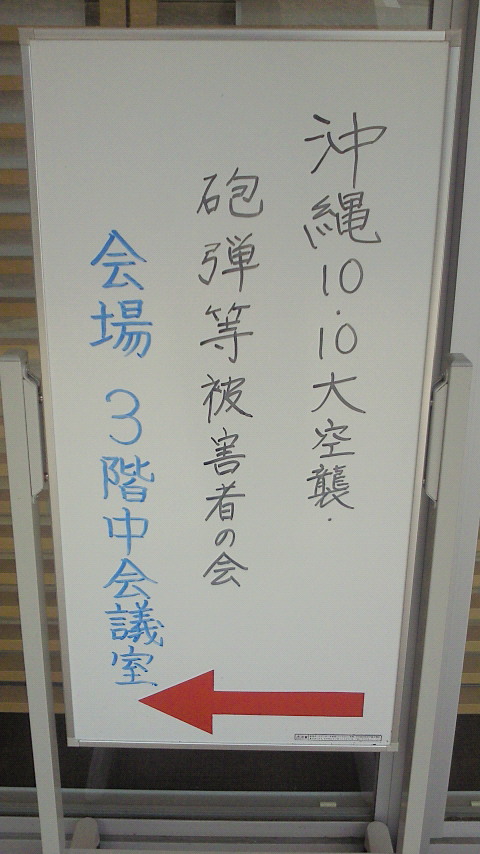 沖縄10.10大空襲・
砲弾等被害者の会
会場 3階中会議室